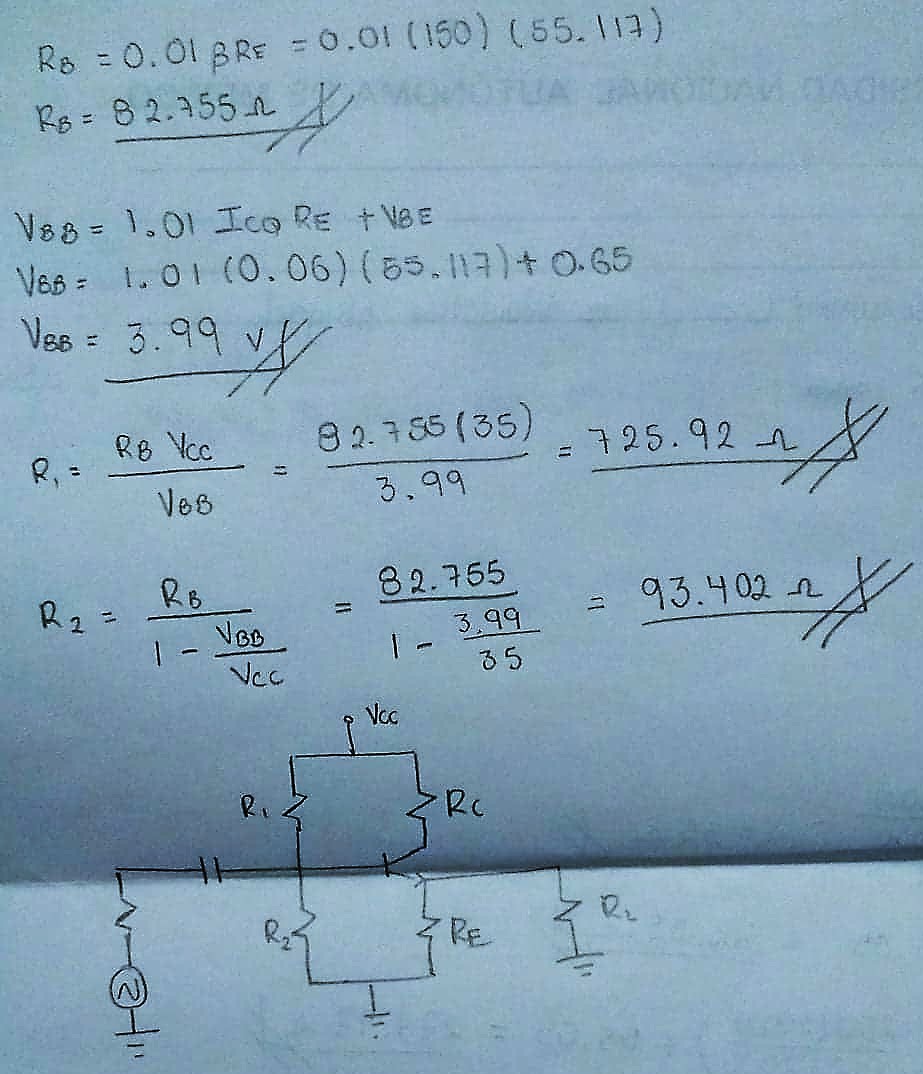 RB = 0.01 βRE = 0.01 (150) (55.117)
RB = 82.755 Ω
VBB = 1.01 ICQ RE + VBE
VBB = 1.01 (0.06) (55.117) + 0.65
VBB = 3.99 V
R1 = RB VCC / VBB = 82.755 (35) / 3.99 = 725.92 Ω
R2 = RB / 1 - VBB / VCC = 82.755 / 1 - 3.99 / 35 = 93.402 Ω
Vcc
R1
RC
R2
RE
RL